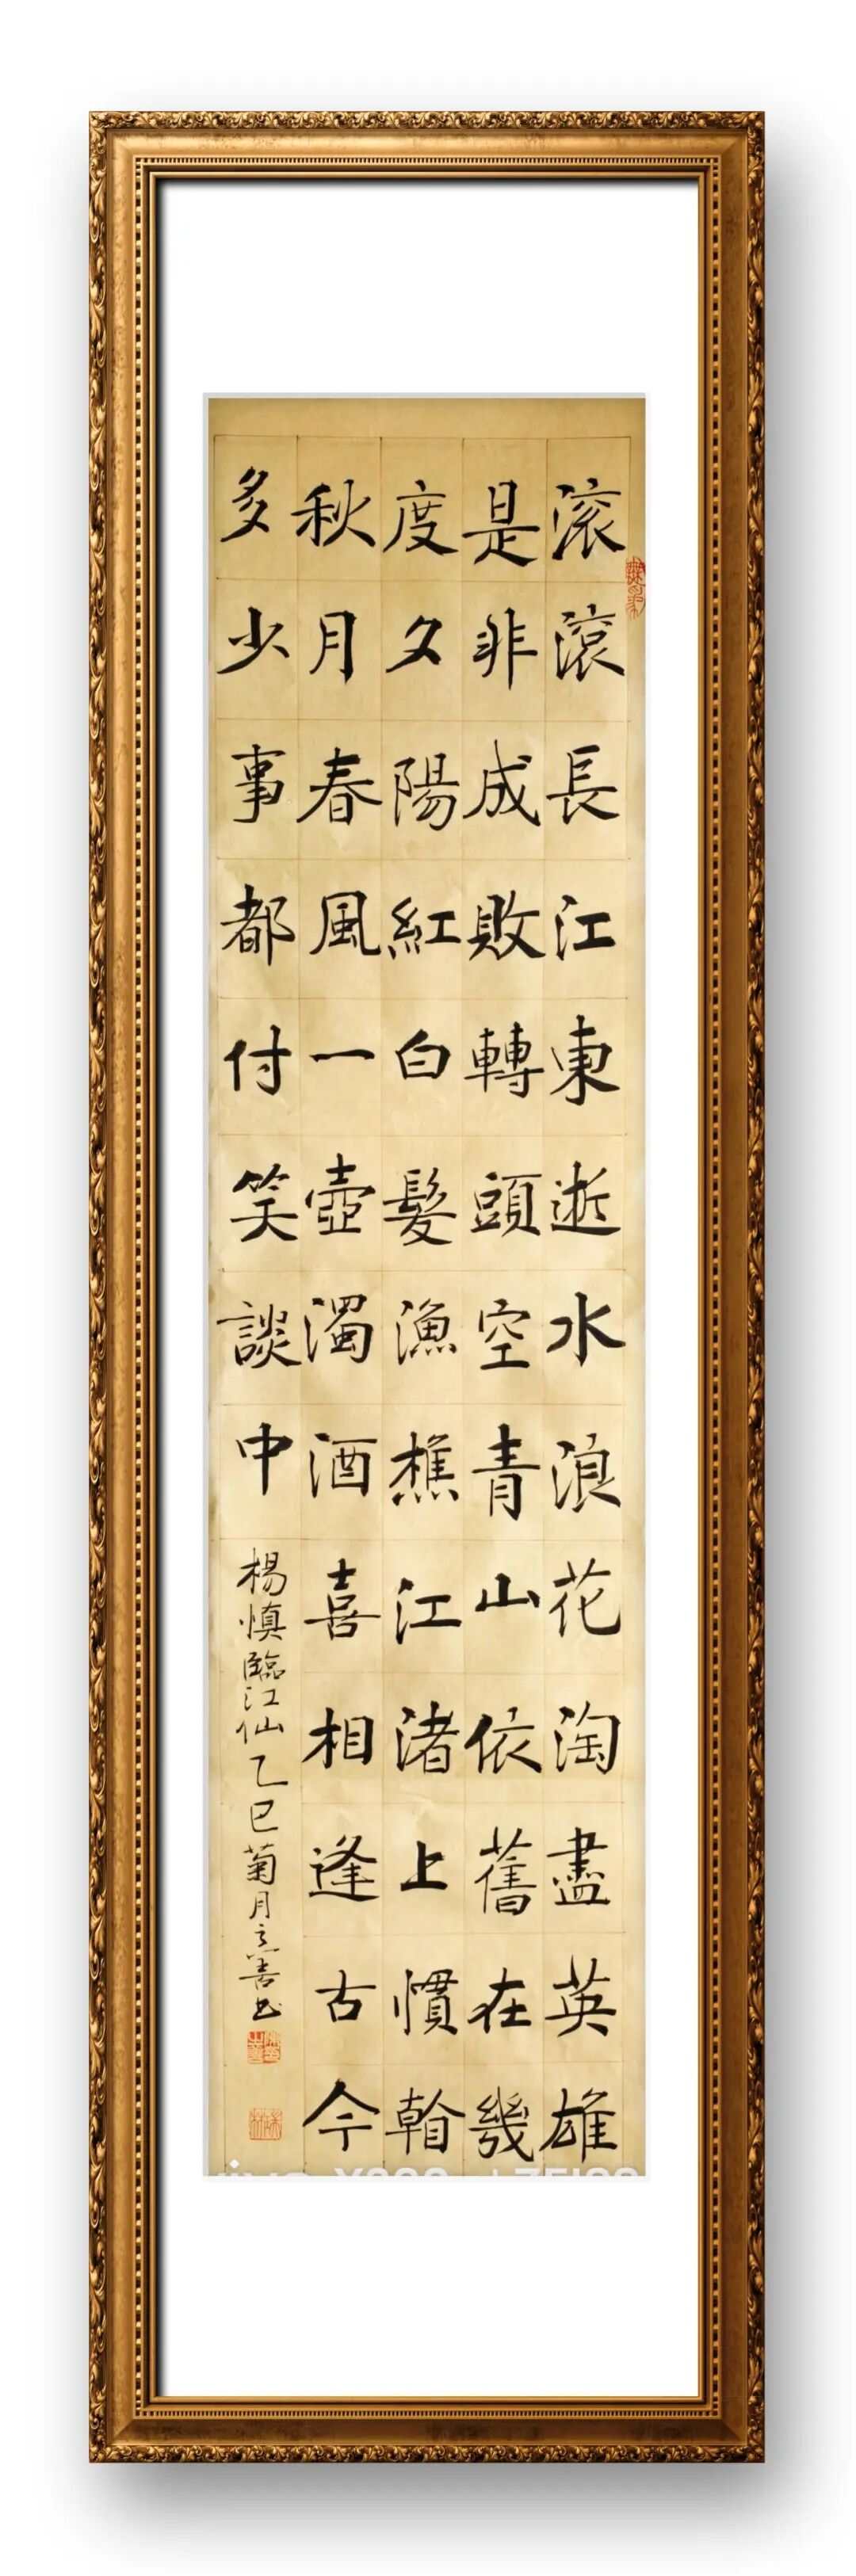 滚滾長江東逝水浪花淘盡英雄
是非成敗轉頭空青山依舊在幾
度夕陽紅白髮漁樵江渚上慣
秋月春風一壺濁酒喜相逢古今
多少事都付笑談中
楊慎臨江仙乙巳菊月善书